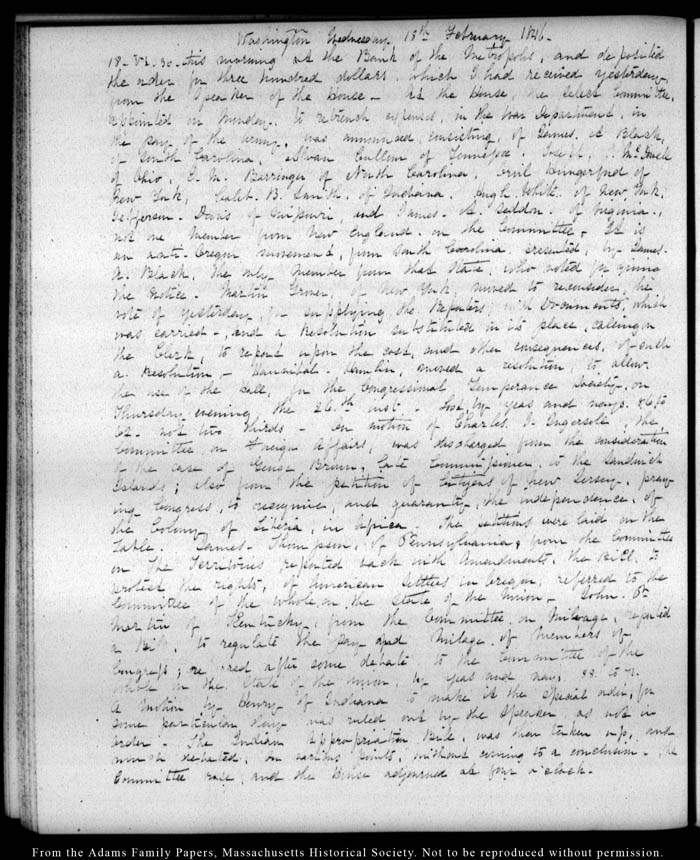 Washington Wednesday 18th February 1846.
18. VI. 30. this morning at the Bank of the Metropolis, and deposited
the order for three hundred dollars which I had received yesterday
from the Speaker of the House — At the House, the select Committee,
appointed on Monday, to retrench expenses, in the War Department, in
the pay of the army, was announced, consisting, of James. A Black,
of South Carolina, Alvan Cullom of Tennessee. Joseph, J. McDowell
of Ohio, D. M. Barringer of North Carolina, Orvil Hungerford of
New York, Caleb. B. Smith. of Indiana. Hugh White. of New York,
Jefferson. Davis of Mississippi, and James. A. Seddon. of Virginia.,
not one member from New England. on the Committee — It is
an anti-Oregon movement, from South Carolina. presented, by James.
A. Black, the only member from that State, who voted for giving
the Notice. Martin Grover, of New York, moved to reconsider, the
vote of yesterday, for supplying, the Reporters, with Documents, which
was carried —, and a Resolution substituted in its place, calling on
the Clerk, to report upon the cost, and other consequences, of such
a Resolution — Hannibal. Hamlin, moved a resolution, to allow
the use of the Hall, for the Congressional Temperance Society, on
Thursday evening the 26.th inst. - lost by yeas and nays. 86 to
62 - not two thirds — On motion of Charles. J. Ingersoll, the
Committee on Foreign Affairs, was discharged from the consideration
of the case of George Brown, late Commissioner. to the Sandwich
Islands; also from the petition of Citizens of New Jersey, pray-
ing Congress, to recognise, and guaranty, the independence, of
the Colony of Liberia, in Africa. The petitions were laid on the
table. James. Thompson, of Pennsylvania, from the Committee
on The Territories reported back with Amendments, the Bill, to
protect, the rights, of American settlers in Oregon, referred to the
Committee of the whole, on the State of the Union — John. P.
Martin of Kentucky, from the Committee. on Mileage, reported
a Bill, to regulate the pay and Milage. of Members of
Congress; referred after some debate to the Committee of the
whole on the State of the Union, by yeas and nays,
A motion by Henry of Indiana to make it the special order, for
some particular day was ruled out by the Speaker as not in
order — The Indian Appropriation Bill, was then taken up, and
much debated, on various points, without coming to a conclusion. The
Committee rose, and the House adjourned at four o'clock.
From the Adams Family Papers, Massachusetts Historical Society. Not to be reproduced without permission.